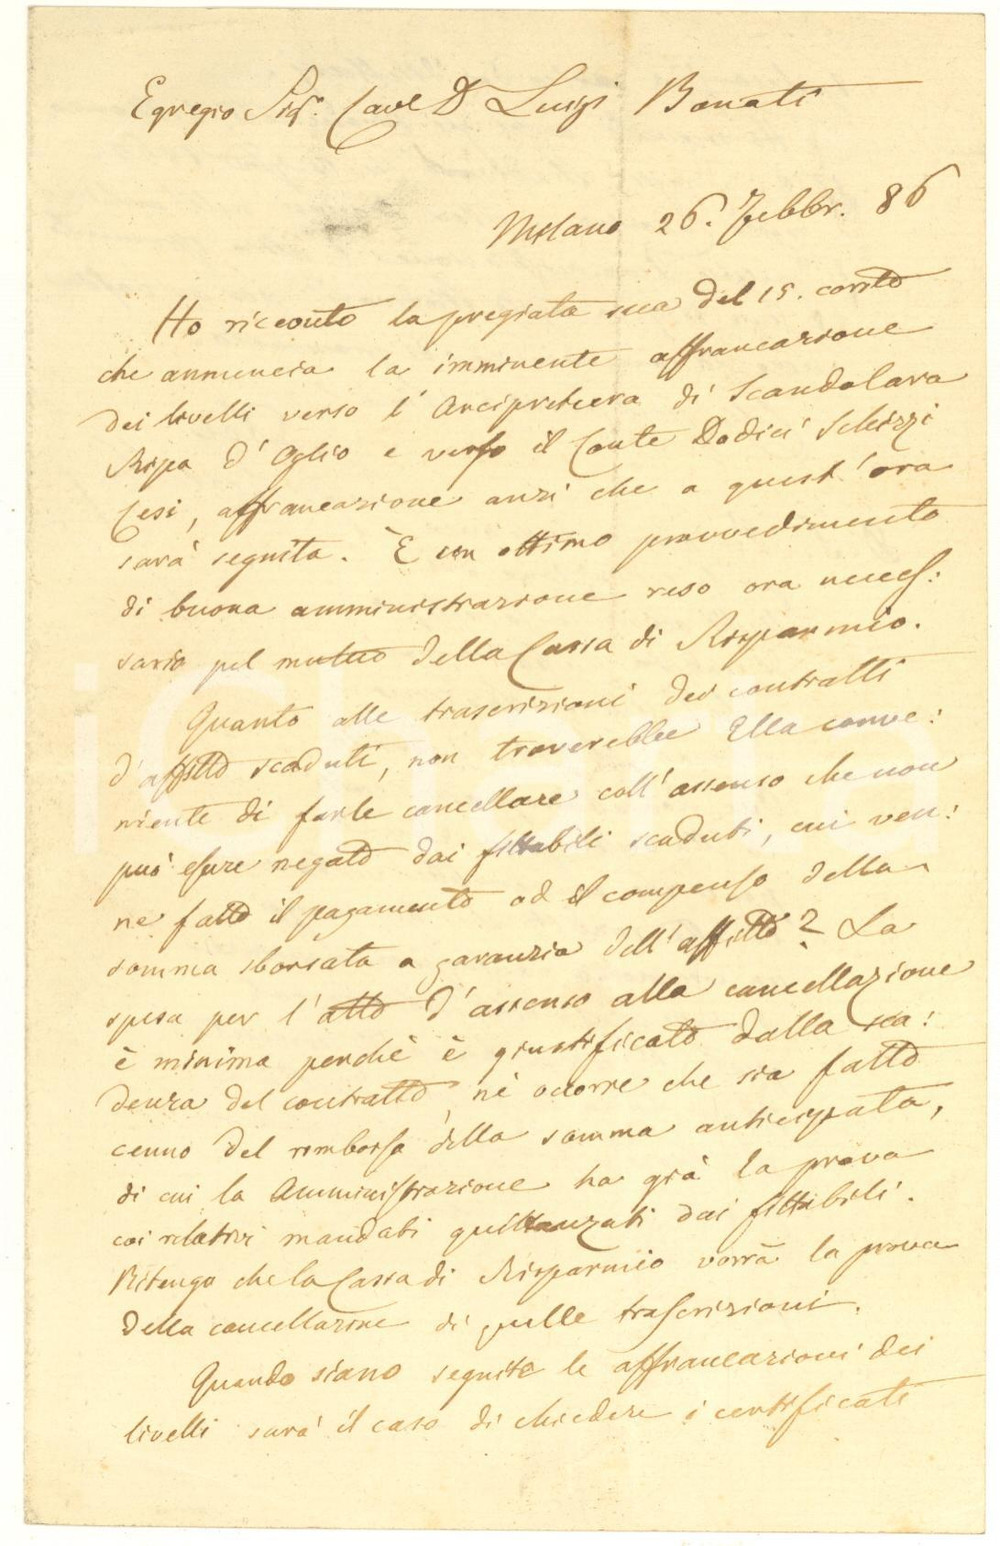 Egregio Sigr. Cave D Luigi Bonati
Milano 26. Febbr. 86
Ho ricevuto la pregiata sua del 15. corrte
che annuncia la imminente affrancazione
dei livelli verso l'Arcipretura di Scandolara
Ripa d'Oglio e verso il Conte Dodici Schizzi
Cesi, affrancazione anzi che a quest'ora
sarà seguita. È un ottimo provvedimento
di buona amministrazione reso ora neces:
sario pel mutuo della Cassa di Risparmio.
Quanto alle trascrizioni dei contratti
d'affitto scaduti, non troverebbe Ella conve:
niente di farle cancellare coll'assenso che non
può essere negato dai fittabili scaduti, cui ven:
ne fatto il pagamento od il compenso della
somma sborsata a garanzia dell'affitto? La
spesa per l'atto d'assenso alla cancellazione
è minima perchè è giustificato dalla sca:
denza del contratto, nè occorre che sia fatto
cenno del rimborso della somma anticipata,
di cui la Amministrazione ha già la prova
coi relativi mandati quittanzati dai fittabili.
Ritengo che la Cassa di Risparmio vorrà la prova
della cancellazione di quelle trascrizioni.
Quando siano seguite le affrancazioni dei
livelli sarà il caso di chiedere i certificati